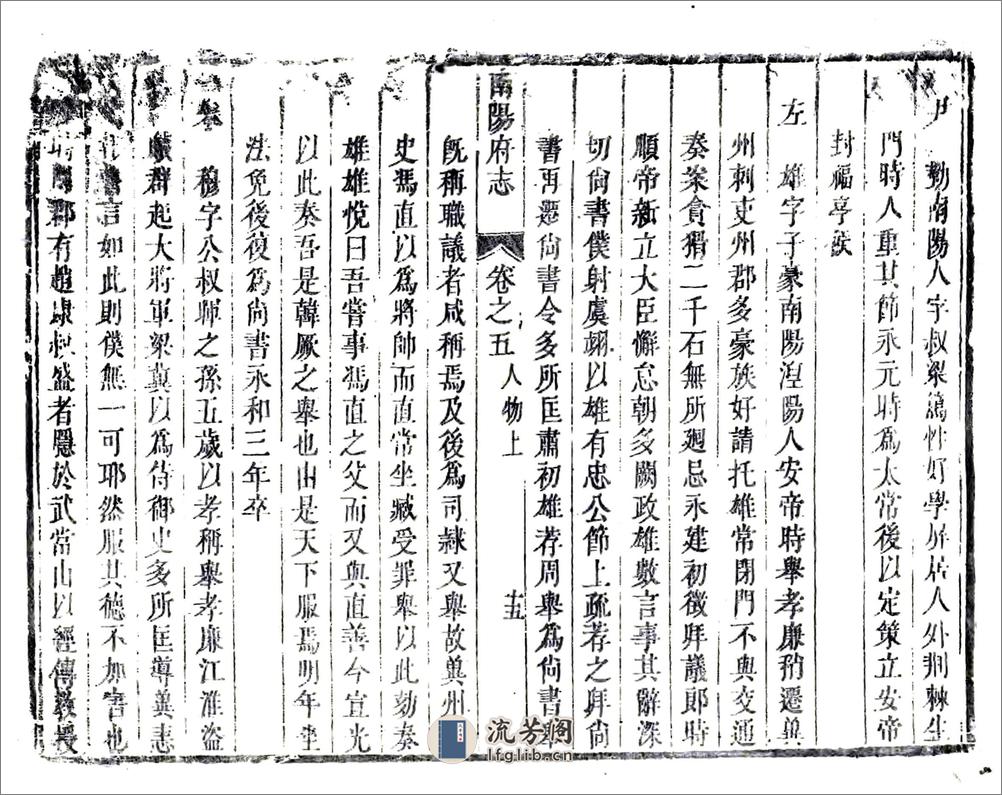 尹　勤南陽人字叔梁篤性好學屏居人外荆棘生
門時人重其節永元時爲太常後以定策立安帝
封福亭侯
左　雄字子豪南陽湼陽人安帝時舉孝廉稍遷兾
州刺吏州郡多豪族好請托雄常閉門不與交通
奏案貪猾二千石無所廻忌永建初徵拜議郎時
順帝新立大臣懈怠朝多闕政雄數言事其辭深
切尙書僕射虞翊以雄有忠公節上疏荐之拜尙
書再遷尙書令多所匡肅初雄荐周舉爲尙書舉
南陽府志　卷之五　人物上　十五
旣稱職議者咸稱焉及後爲司隷又舉故兾州
史馮直以爲將帥而直常坐臧受罪舉以此劾奏
雄雄悅曰吾嘗事馮直之父而又與直善今宣光
以此奏吾是韓厥之舉也由是天下服焉明年坐
法免後復爲尙書永和三年卒
　穆字公叔暉之孫五歲以孝稱舉孝廉江淮盜
群起大將軍梁冀以爲侍御史多所匡導冀恚
言如此則僕無一可耶然服其德不加害也
時同郡有趙康叔盛者隱於武當山以經傳教授
流芳阁
lfglib.cn